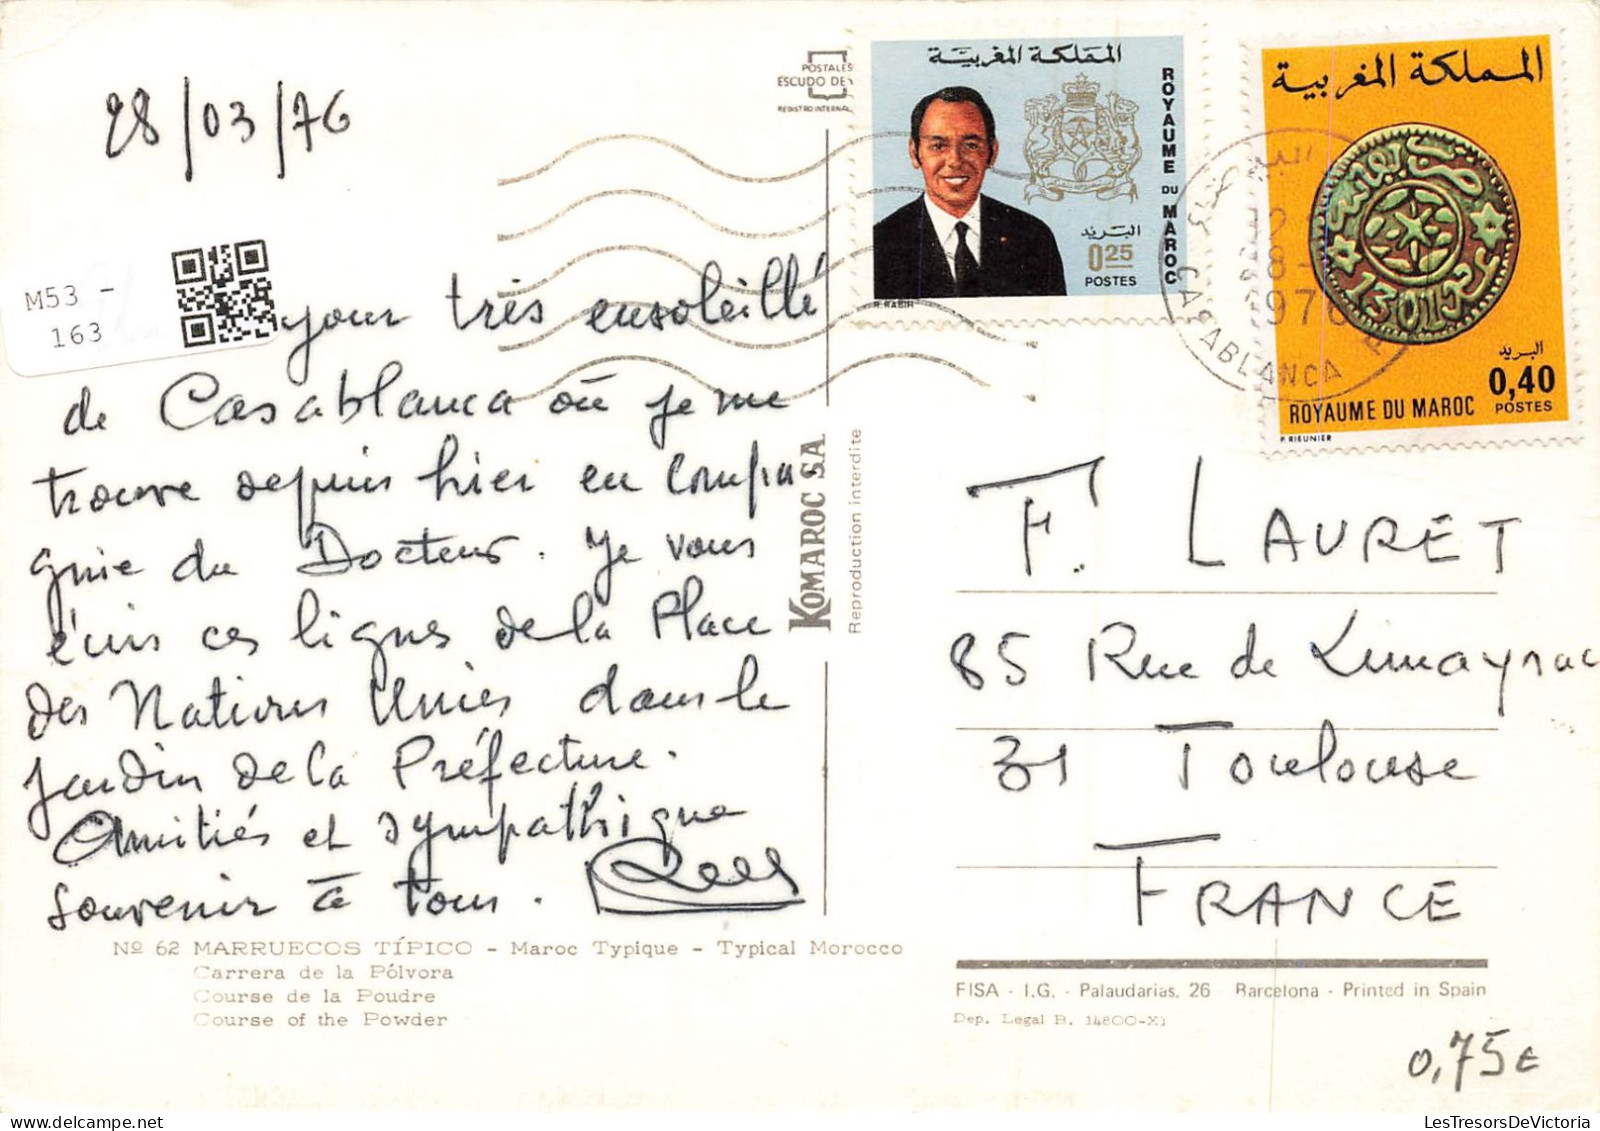 28/03/76
M53 -
163
jour très ensoleillé
de Casablanca où je me
trouve depuis hier en compa
gnie du Docteur. Je vous
écris ces lignes de la Place
des Nations Unies dans le
jardin de la Préfecture.
Amitiés et sympathique
souvenir à tous.
Nº 62 MARRUECOS TÍPICO - Maroc Typique - Typical Morocco
Carrera de la Pólvora
Course de la Poudre
Course of the Powder
POSTALES
ESCUDO DE
REGISTRO INTERNAL
KOMAROC S.A.
Reproduction interdite
المملكة المغربية
ROYAUME DU MAROC
البريد
0.25
POSTES
H. RABIH
CASABLANCA
1976
المملكة المغربية
1301
البريد
0,40
ROYAUME DU MAROC POSTES
P. RIEUNIER
F. LAURET
85 Rue de Limayrac
31 Toulouse
FRANCE
FISA - I.G. - Palaudarias, 26 Barcelona - Printed in Spain
Dep. Legal B. 14800-XI
0,75€
LesTresorsDeVictoria